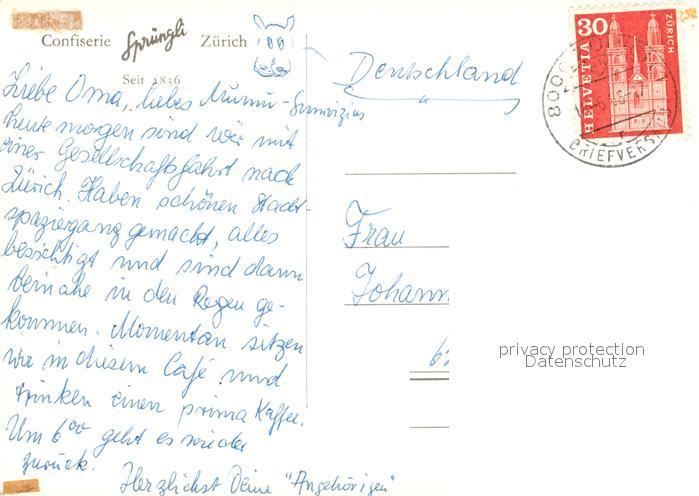 Confiserie Sprüngli Zürich
Seit 1836
Liebe Oma, liebes
heute morgen sind wir mit
einer Gesellschaftsfahrt nach
Zürich. Haben schönen Stadt-
spaziergang gemacht, alles
besichtigt und sind dann
beinahe in den Regen ge-
kommen. Momentan sitzen
wir in diesem Café und
trinken einen prima Kaffee.
Um 6⁰⁰ geht es wieder
zurück.
Herzlichst Deine "Angehörigen"
Deutschland
Frau
Johann
privacy protection
Datenschutz
30
HELVETIA
ZÜRICH
8000
BRIEFVERSAND